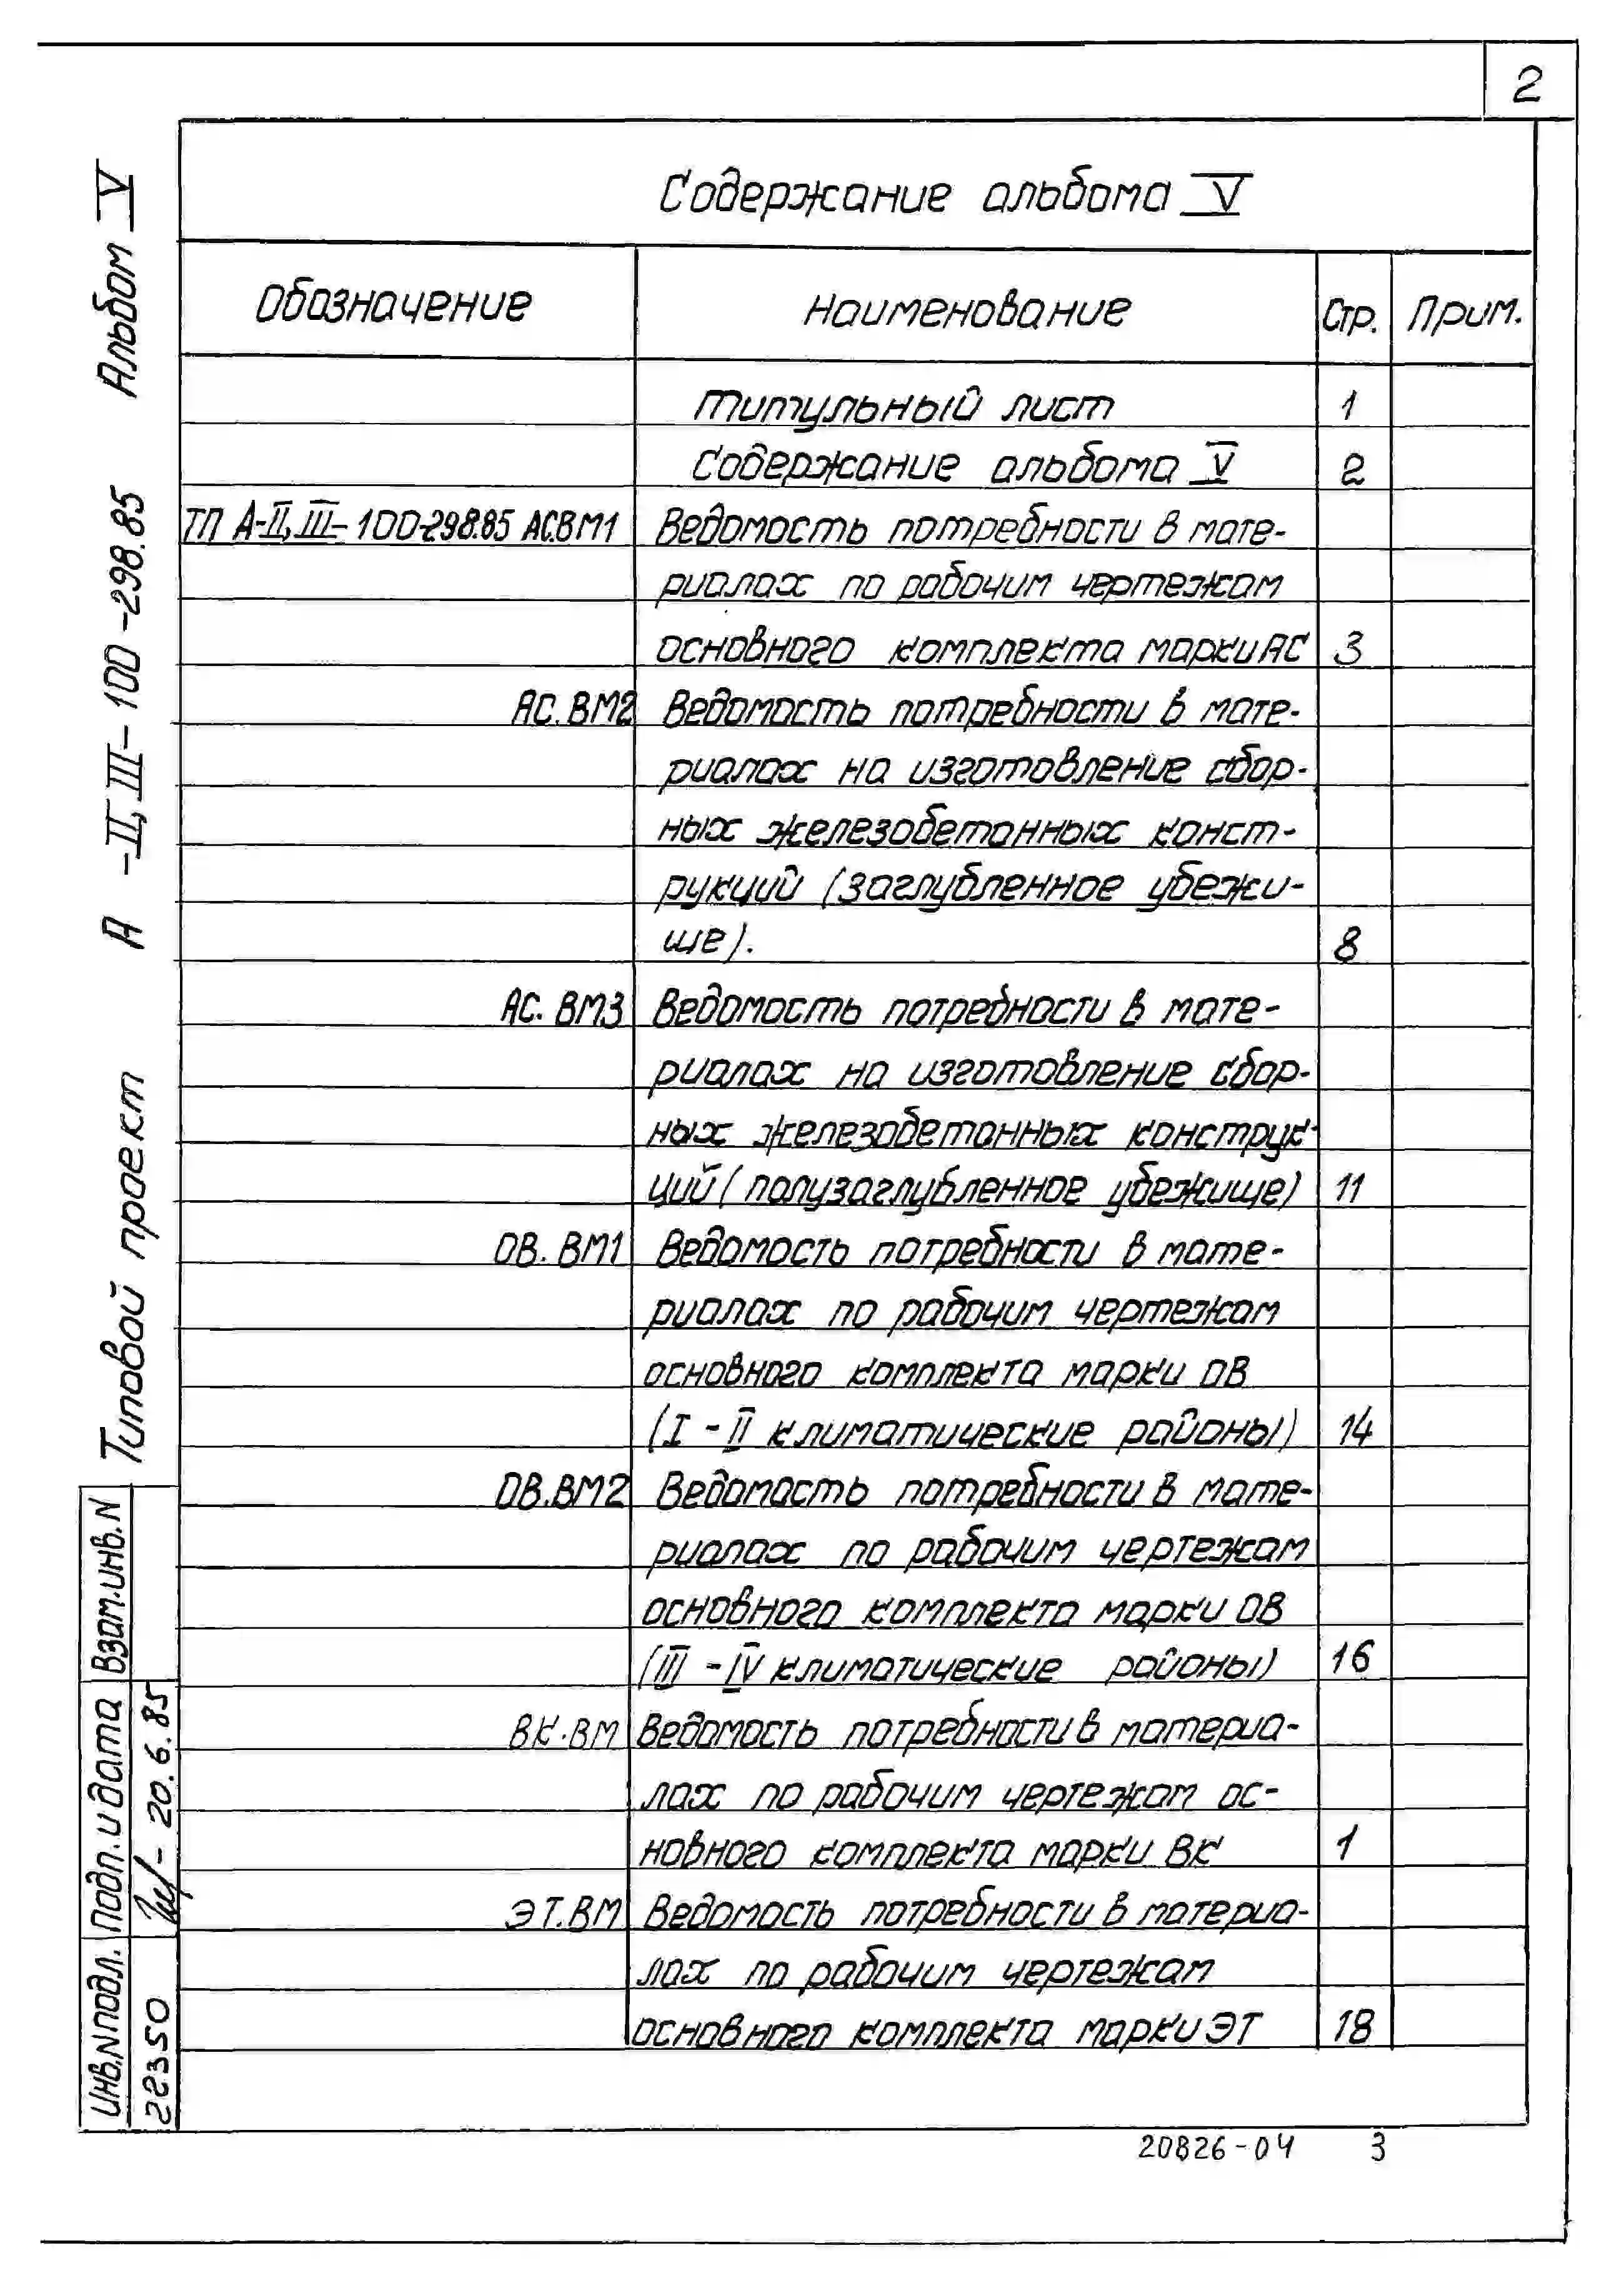 2
Содержание альбома V
Обозначение Наименование Стр. Прим.
Титульный лист 1
Содержание альбома V 2
ТП А-II,III-100-298.85 АС.ВМ1 Ведомость потребности в мате-
риалах по рабочим чертежам
основного комплекта марки АС 3
АС.ВМ2 Ведомость потребности в мате-
риалах на изготовление сбор-
ных железобетонных конст-
рукций (заглубленное убежи-
ще). 8
АС.ВМ3 Ведомость потребности в мате-
риалах на изготовление сбор-
ных железобетонных конструк-
ций (полузаглубленное убежище) 11
ОВ.ВМ1 Ведомость потребности в мате-
риалах по рабочим чертежам
основного комплекта марки ОВ
(I - II климатические районы) 14
ОВ.ВМ2 Ведомость потребности в мате-
риалах по рабочим чертежам
основного комплекта марки ОВ
(III - IV климатические районы) 16
ВК.ВМ Ведомость потребности в материа-
лах по рабочим чертежам ос-
новного комплекта марки ВК 1
ЭТ.ВМ Ведомость потребности в материа-
лах по рабочим чертежам
основного комплекта марки ЭТ 18
Типовой проект А -II, III- 100 -298.85 Альбом V
Взам.инв.N
Подп. и дата 20.6.85
Инв.N подл. 22350
20826-04 3